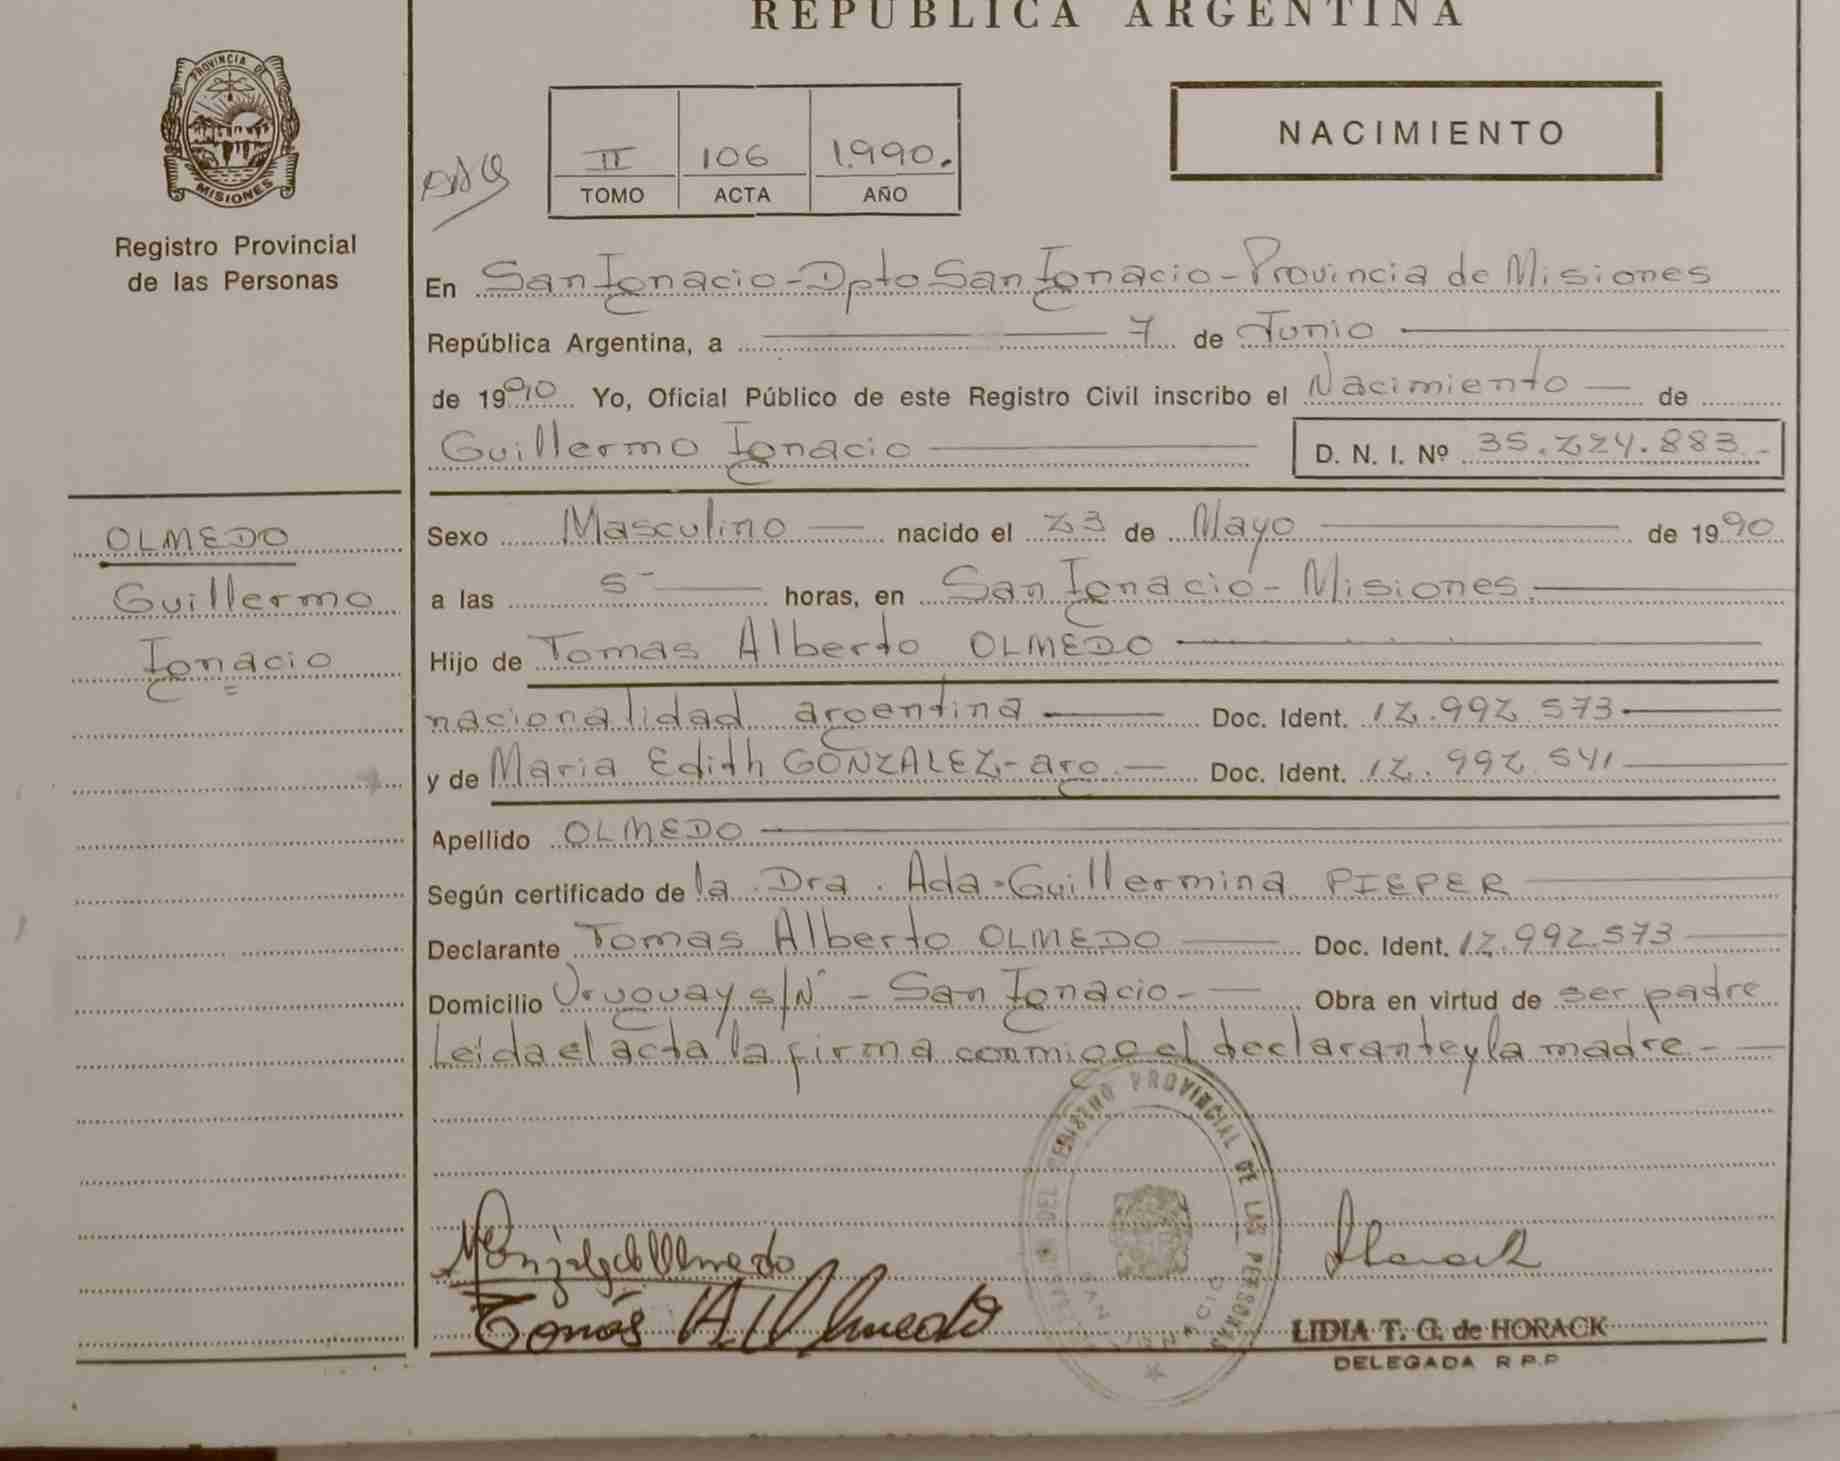 REPUBLICA ARGENTINA
PROVINCIA DE MISIONES
Registro Provincial
de las Personas
II 106 1.990.
TOMO ACTA AÑO
NACIMIENTO
En San Ignacio-Dpto San Ignacio-Provincia de Misiones
República Argentina, a 7 de Junio
de 1990 Yo, Oficial Público de este Registro Civil inscribo el Nacimiento de
Guillermo Ignacio D. N. I. Nº 35.224.883.-
OLMEDO
Guillermo
Ignacio
Sexo Masculino nacido el 23 de Mayo de 1990
a las 5- horas, en San Ignacio- Misiones.
Hijo de Tomas Alberto OLMEDO
nacionalidad argentina Doc. Ident. 12.992.573
y de Maria Edith GONZALEZ-arg. Doc. Ident. 12.992.541
Apellido OLMEDO
Según certificado de la Dra. Ada-Guillermina PIEPER
Declarante Tomas Alberto OLMEDO Doc. Ident. 12.992.573
Domicilio Uruguay s/Nº - San Ignacio- Obra en virtud de ser padre
Leída el acta la firma conmigo el declarante y la madre-
REGISTRO PROVINCIAL DE LAS PERSONAS
SAN IGNACIO
Tomás A. Olmedo
LIDIA T. G. de HORACK
DELEGADA R P.P